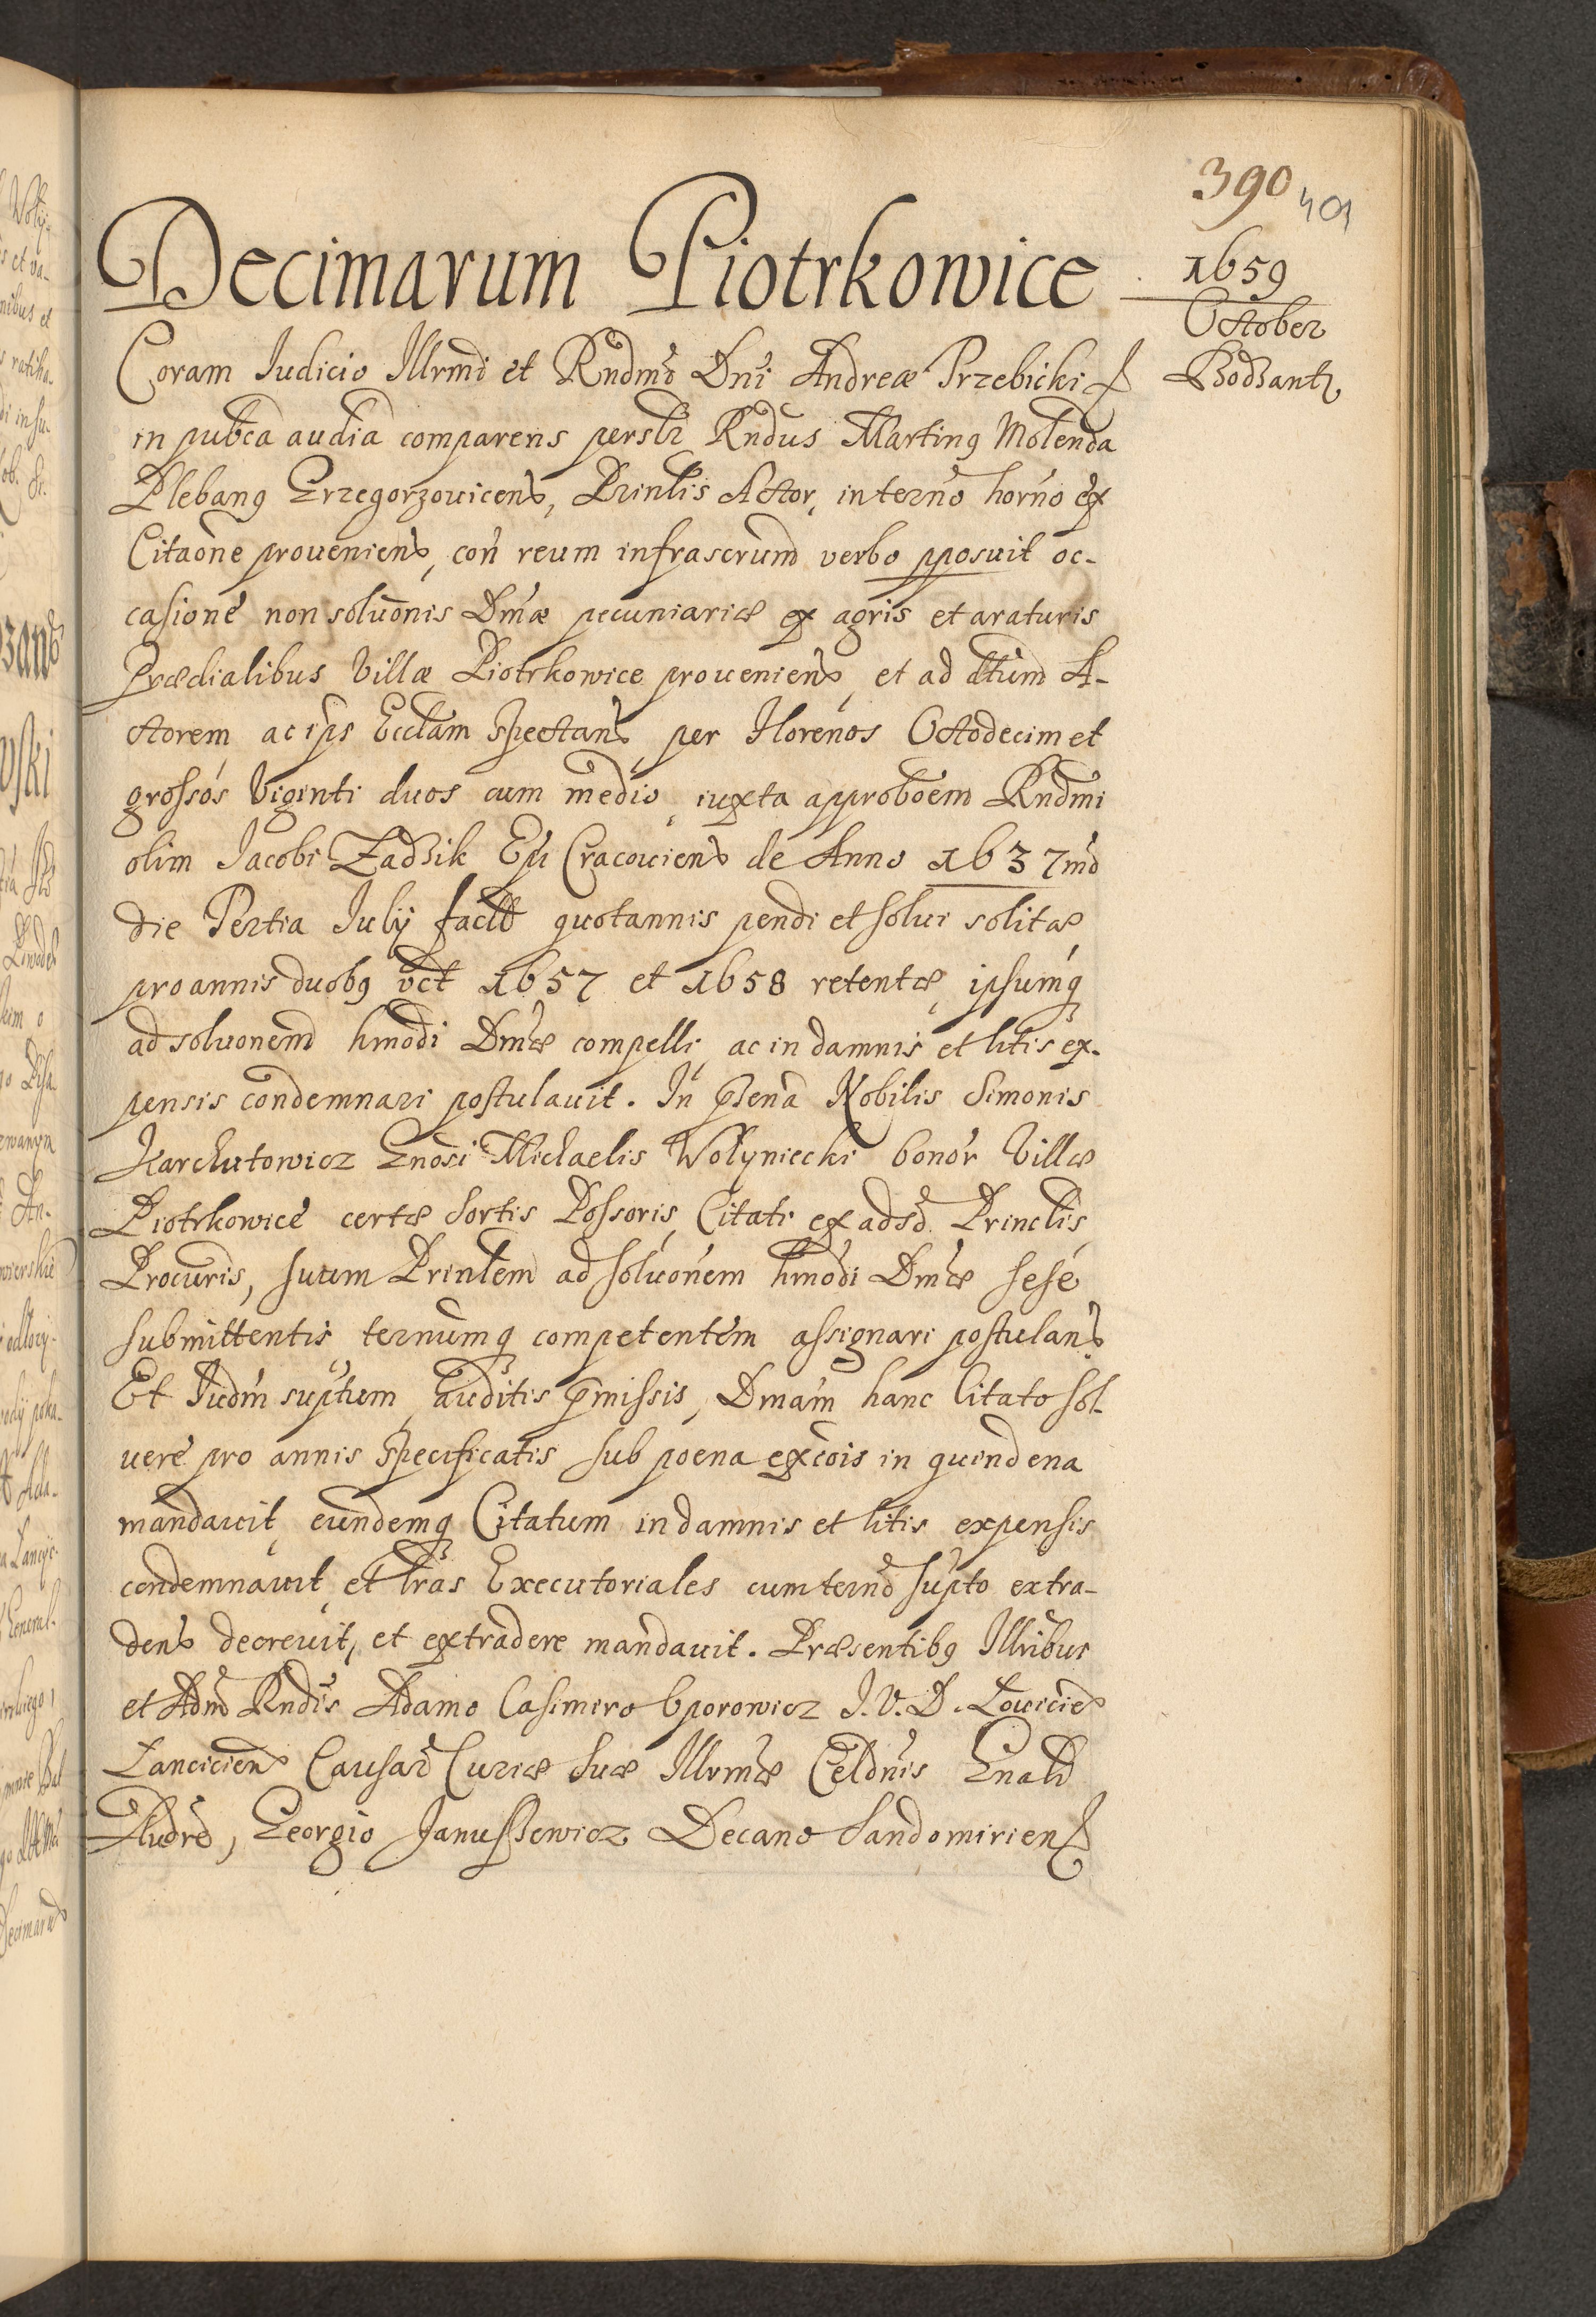 390
401
Decimarum Piotrkowice
1659
October
Bodzantz
Coram Iudicio Illrmi et Rndmi Dni Andreæ Trzebicki
in pubca audia comparens persłr Rndus Martinq Molenda
Plebanq Grzegorzouicens, Prinlis Actor, in termo horno ex
Citaone proueniens, con reum infrascrum verbo pposuit oc-
casione non soluonis Dmæ pecuniariæ ex agris et araturis
Prædialibus Villæ Piotrkowice proueniens, et ad dtum A-
ctorem ac ips Ecclam spectans, per florenos Octodecim et
grossos Viginti duos cum medio, iuxta approboem Rndmi
olim Jacobi Zadzik Epi Cracouiens de Anno 1637mo
die Tertia Iulij fact quotannis pendi et solui solitæ
pro annis duobq vct 1657 et 1658 retentæ, ipsumq
ad soluonem hmodi Dmæ compelli, ac in damnis et litis ex-
pensis condemnari postulauit. In psena Nobilis Simonis
Karchutowicz Gnosi Michaelis Wołyniecki bonor Villæ
Piotrkowice certæ Sortis Possoris, Citati ex adso Princlis
Procuris, suum Prinlem ad soluonem hmodi Dmæ sese
submittentis termumq competentem assignari postulans
Et Iudm suptum, auditis pmissis, Dmam hanc Citato sol-
uere pro annis specificatis sub poena excois in quindena
mandauit, eundemq Citatum in damnis et litis expensis
condemnauit, et lras Executoriales cum termo supto extra-
dens decreuit, et extradere mandauit. Præsentibq Illribus
et Admo Rndis Adamo Casimiro Oporowicz I.V.D. Louicien
Lancicien Causar Curiæ Suæ Illrmæ Celdnis Gnali
Audre, Georgio Janussewicz Decano Sandomirien